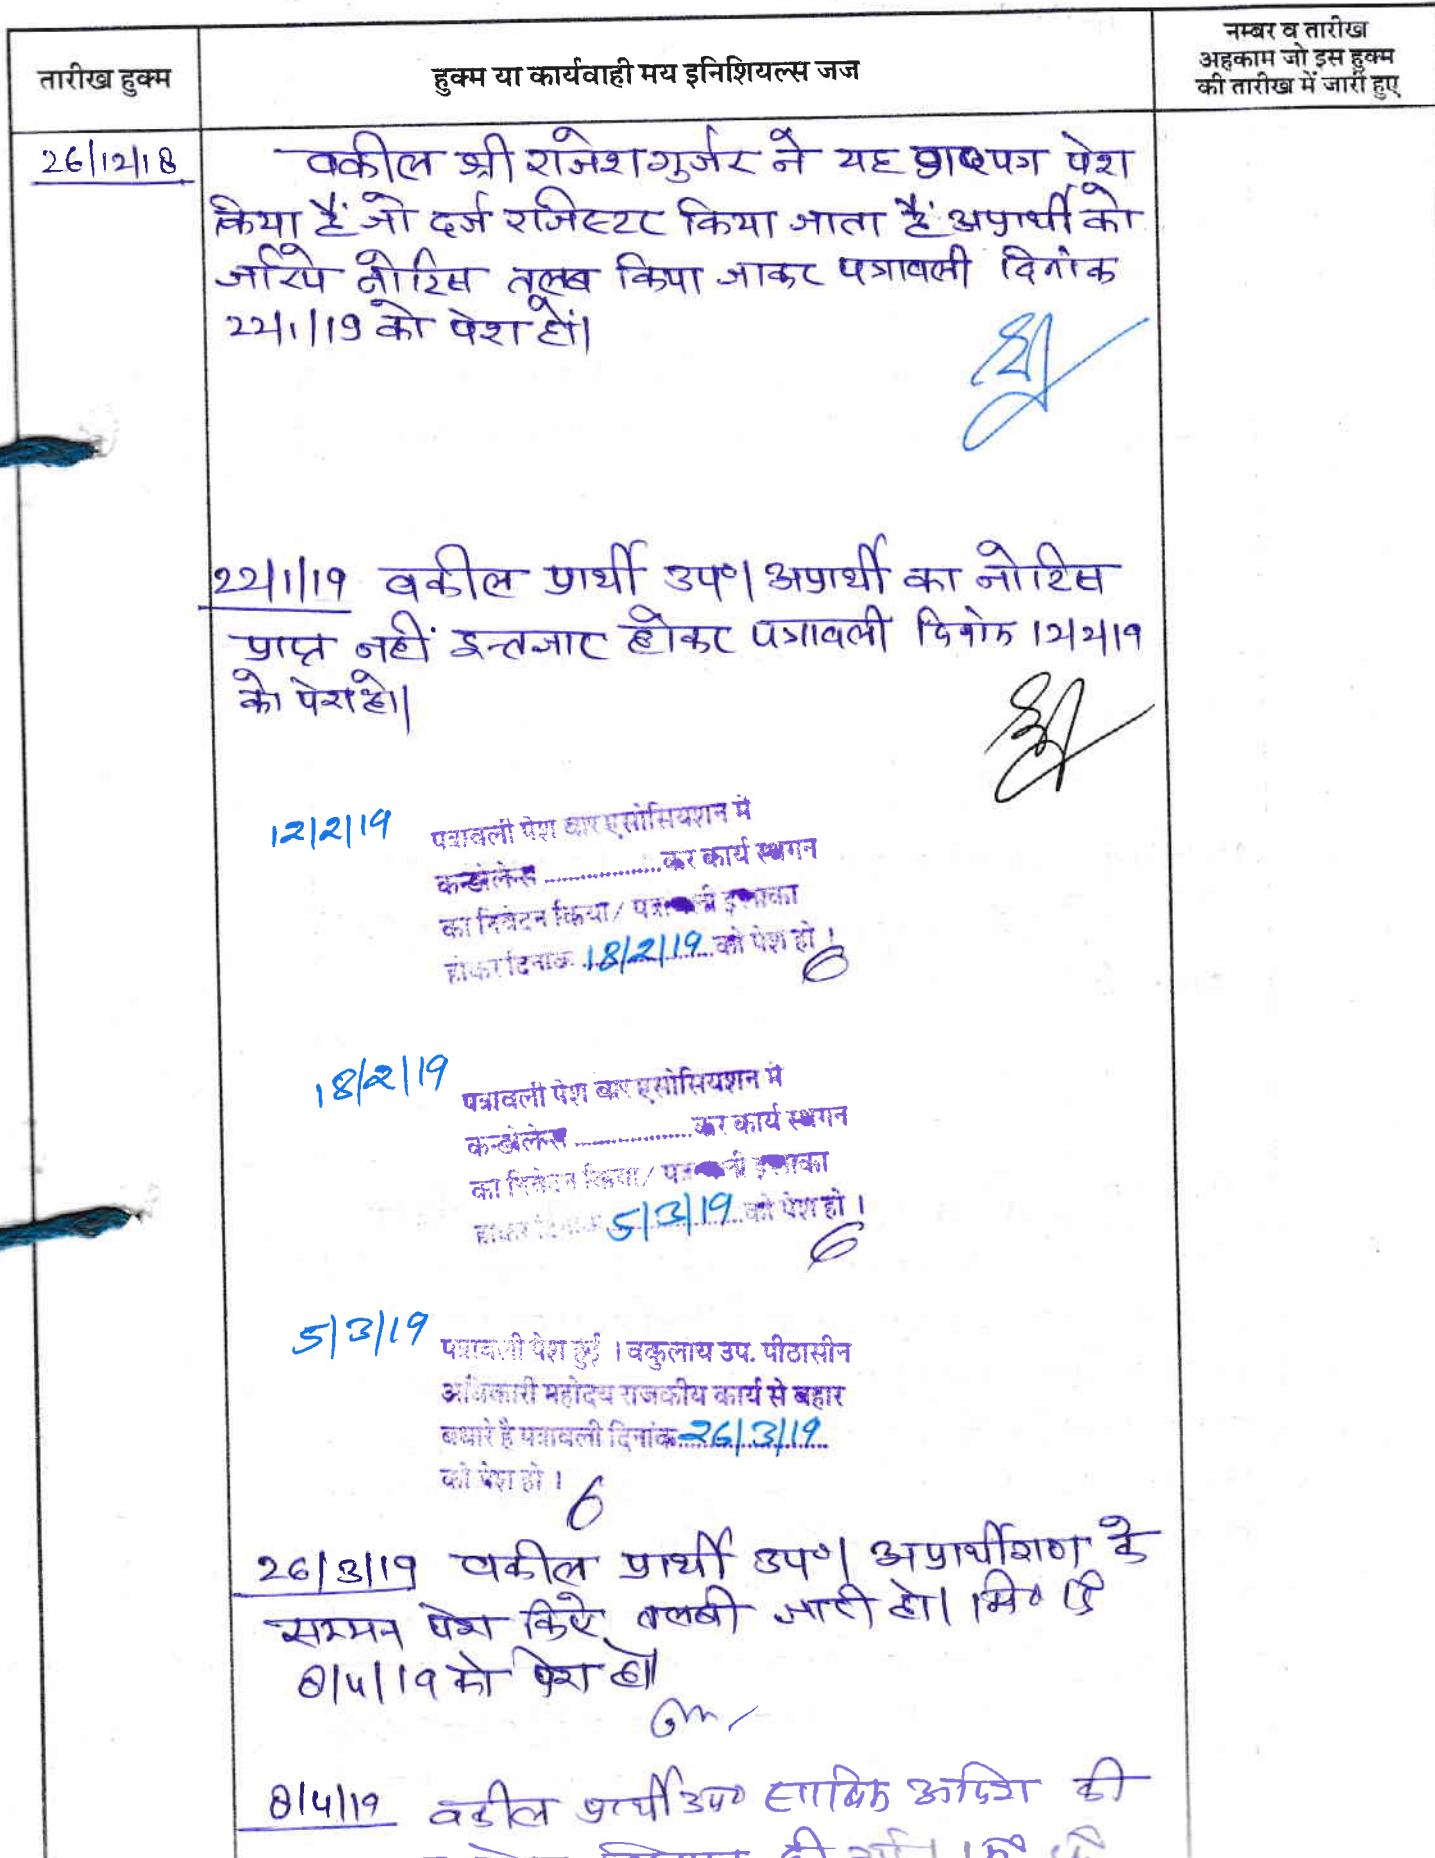 तारीख हुक्म
हुक्म या कार्यवाही मय इनिशियल्स जज
नम्बर व तारीख
अहकाम जो इस हुक्म
की तारीख में जारी हुए
26/12/18
वकील श्री राजेश गुर्जर ने यह पत्र पेश
किया हैं जो दर्ज रजिस्टर किया जाता हैं अप्रार्थी को
जरिये नोटिस तलब किया जाकर पत्रावली दिनांक
22/1/19 को पेश हों।
22/1/19 वकील प्रार्थी उप०। अप्रार्थी का नोटिस
प्राप्त नहीं इन्तजार होकर पत्रावली दिनांक 12/2/19
को पेश हो।
12/2/19
पत्रावली पेश बार एसोसियशन में
कन्डोलेन्स ..................कर कार्य स्थगन
का निवेदन किया/ पत्रावली इलाका
होकर दिनांक 18/2/19 को पेश हो ।
18/2/19
पत्रावली पेश बार एसोसियशन में
कन्डोलेन्स ..................कर कार्य स्थगन
का निवेदन किया/ पत्रावली इलाका
होकर दिनांक 5/3/19 को पेश हो ।
5/3/19
पत्रावली पेश हुई । वकुलाय उप. पीठासीन
अधिकारी महोदय राजकीय कार्य से बहार
पधारे है पत्रावली दिनांक 26/3/19
को पेश हो ।
26/3/19 वकील प्रार्थी उप०। अप्रार्थीगण के
सम्मन पेश किए तलबी जारी हो।
8/4/19 को पेश हो
8/4/19 वकील प्रार्थी उप० साबिक आदेश की